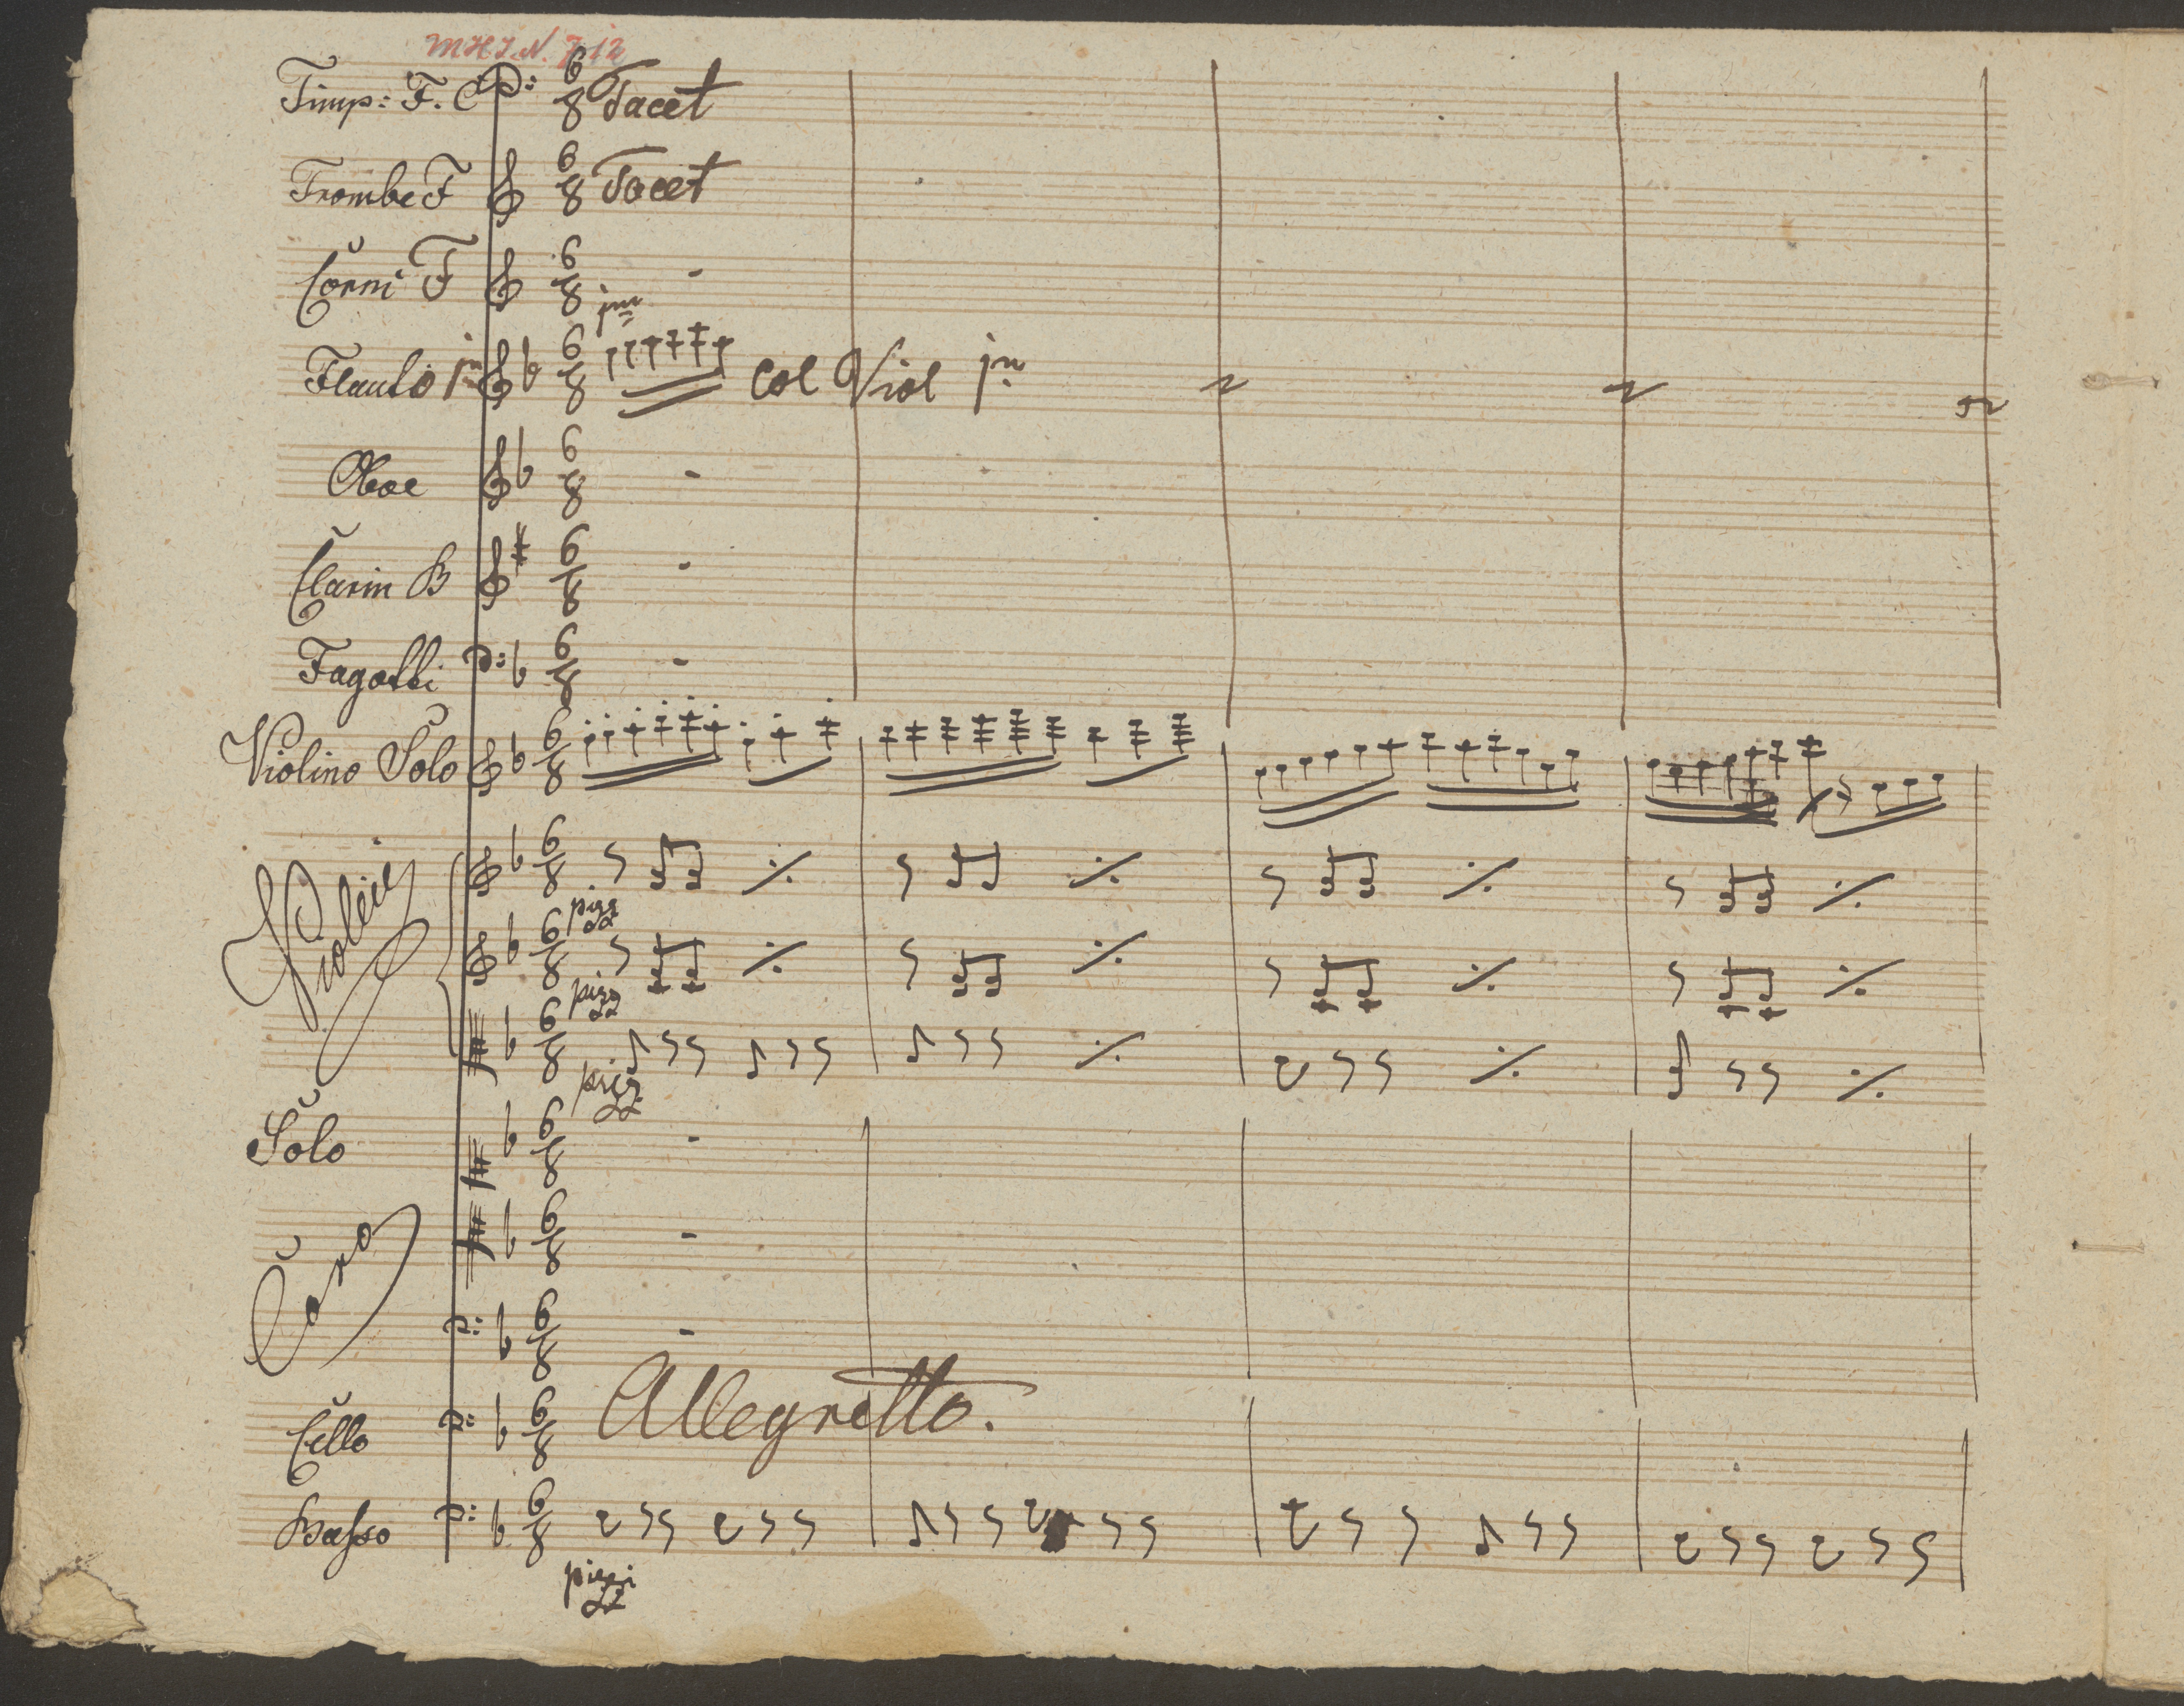 Timp: F. C 6 8 Tacet
Trombe F 6 8 Tacet
Corni F 6 8
Flauto 6 8 col Viol
Oboe 6 8
Clarin B 6 8
Fagotti 6 8
Violino Solo 6 8
6 8 pizz
Violini 6 8 pizz
6 8 pizz
Solo 6 8
Coro 6 8
6 8
Cello 6 8 Allegretto.
Basso 6 8